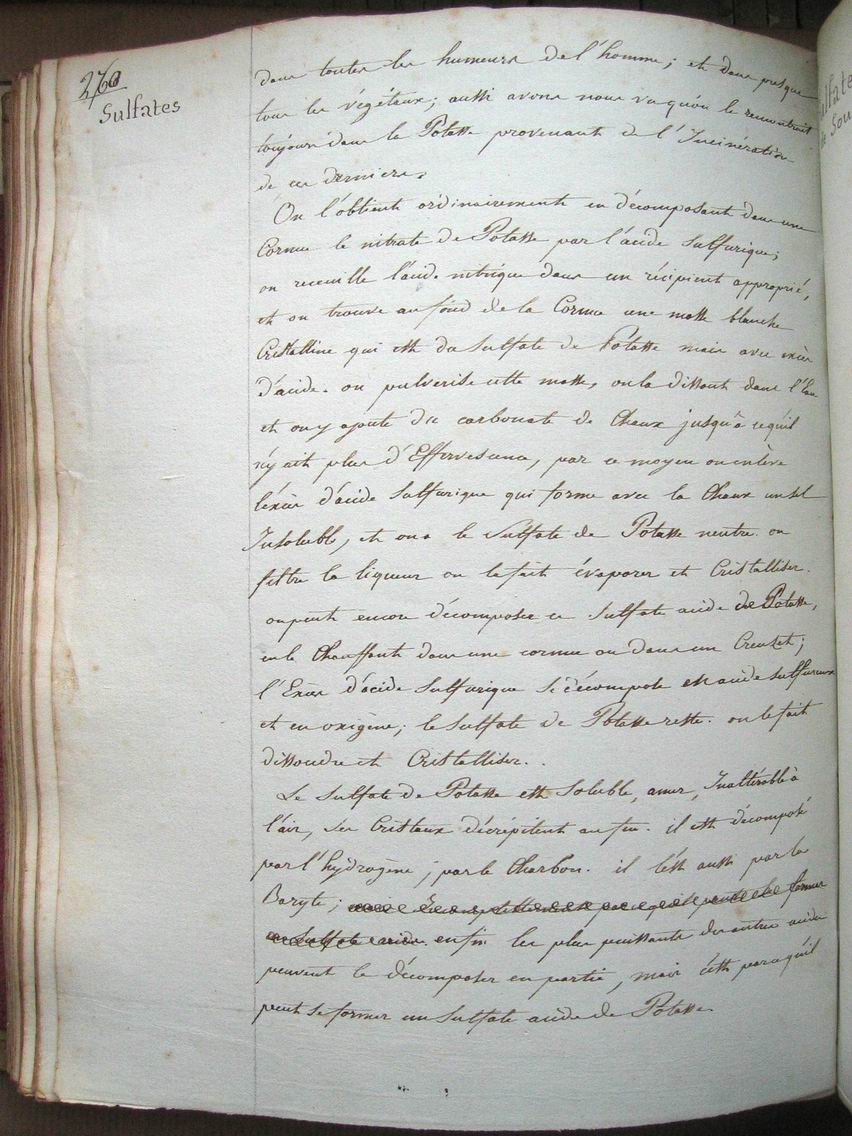 270
Sulfates
dans toutes les humeurs de l'homme; et dans presque
tous les végétaux; aussi avons nous vu qu'on le rencontrait
toujours dans la Potasse provenant de l'Incinération
de ces derniers.
On l'obtient ordinairement en décomposant dans une
Cornue le nitrate de Potasse par l'acide Sulfurique;
on receuille l'acide nitrique dans un récipient approprié,
et on trouve au fond de la Cornue une masse blanche
Cristalline qui est du Sulfate de Potasse mais avec excès
d'acide. on pulverise cette masse, on la dissout dans l'Eau
et on y ajoute du carbonate de Chaux jusqu'à cequ'il
n'y ait plus d'Effervescence, par ce moyen on enlève
l'excès d'acide Sulfurique qui forme avec la Chaux un sel
Insoluble, et on a le Sulfate de Potasse neutre. on
filtre la liqueur on la fait évaporer et Cristalliser.
on peut encore décomposer ce Sulfate acide de Potasse,
en le Chauffant dans une cornue ou dans un Creuset;
l'Excès d'acide Sulfurique se décompose en acide sulfureux
et en oxigène; le sulfate de Potasse reste. on le fait
dissoudre et Cristalliser.
Le Sulfate de Potasse est Soluble, amer, Inaltérable à
l'air, Ses Cristaux décrépitent au feu. il est décomposé
par l'hydrogène; par le Charbon. il l'est aussi par la
Baryte; former
enfin les plus puissants des autres acides
peuvent le décomposer en partie, mais c'est parcequ'il
peut se former un Sulfate acide de Potasse.